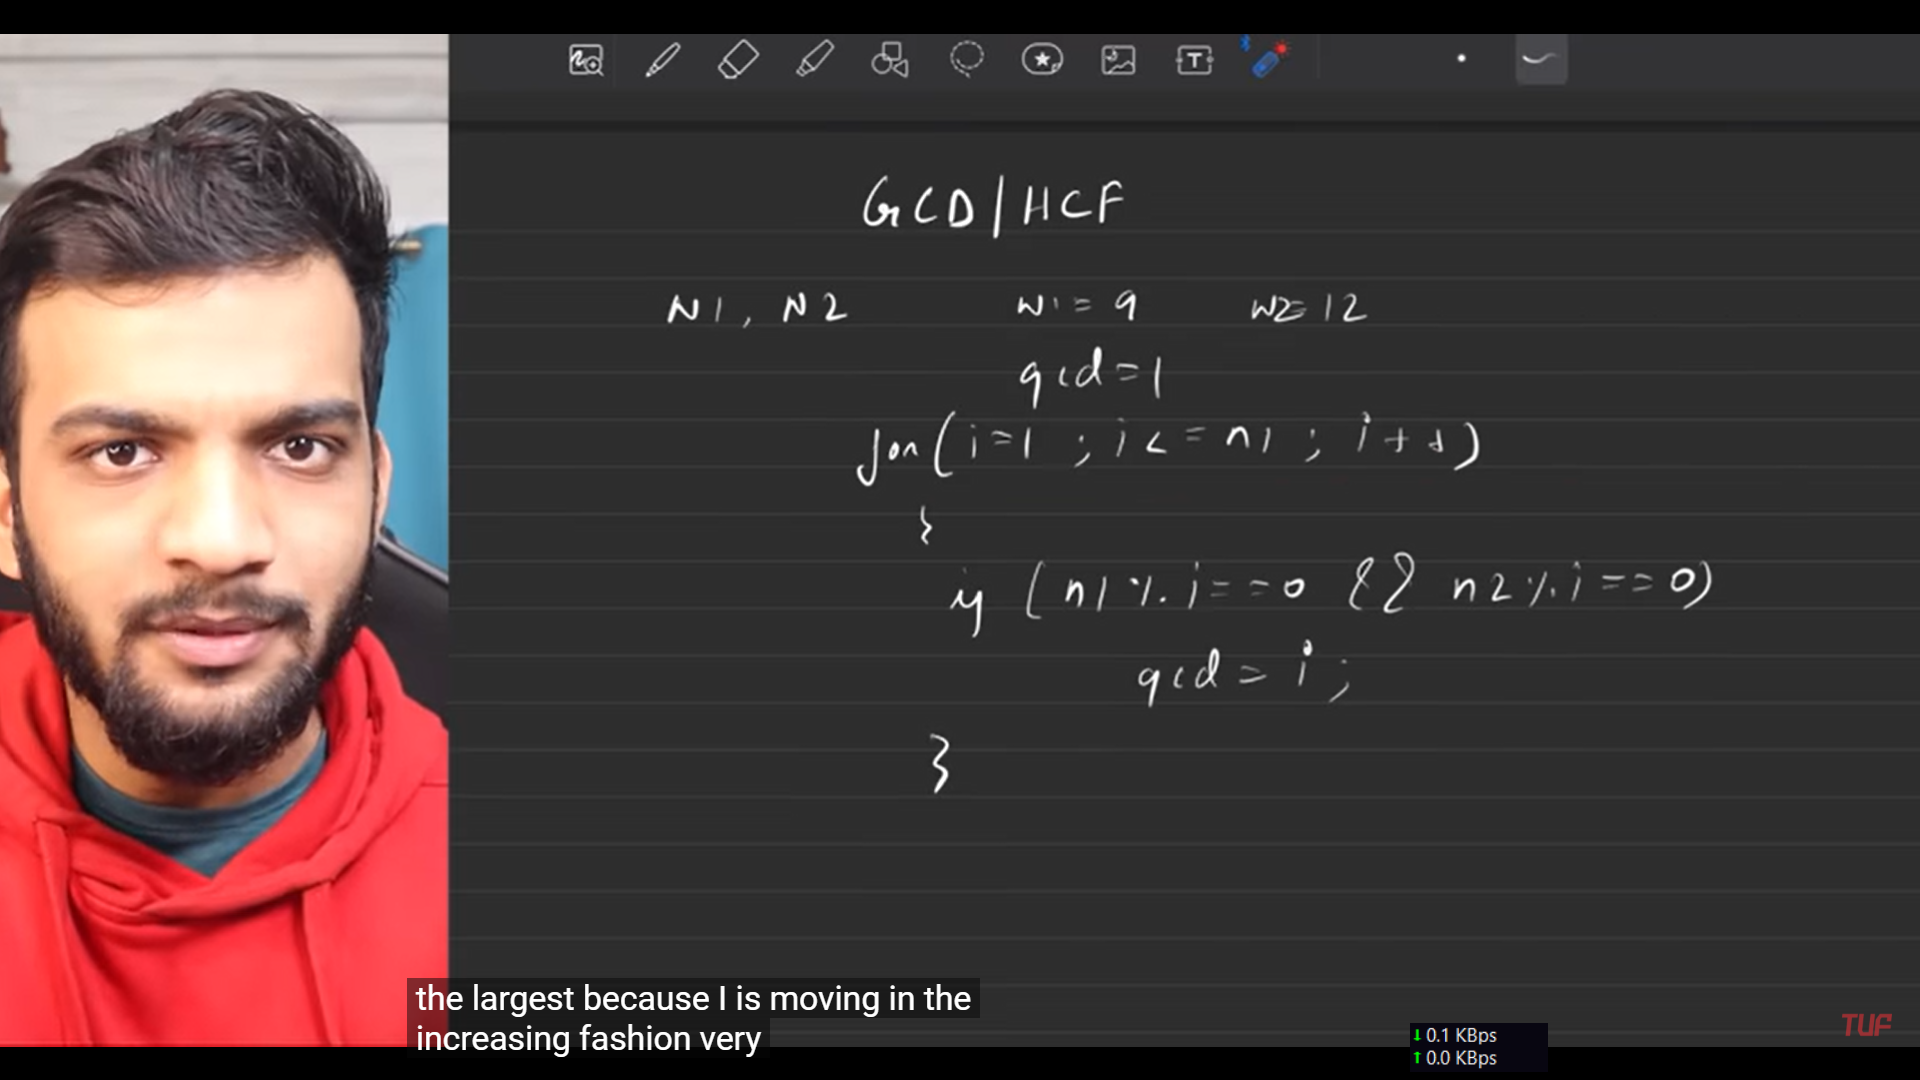 GCD/HCF
N1, N2 N1 = 9 N2 = 12
gcd = 1
for (i = 1 ; i <= n1 ; i++)
{
if (n1 % i == 0 && n2 % i == 0)
gcd = i ;
}
the largest because I is moving in the
increasing fashion very
TUF
↓ 0.1 KBps
↑ 0.0 KBps